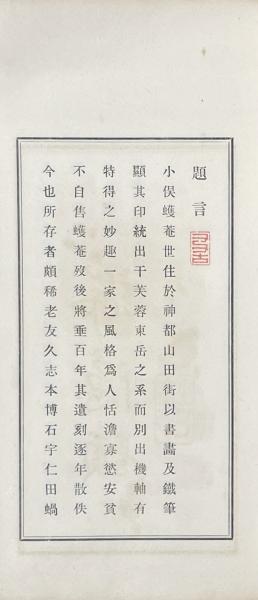 題言
小俣蠖菴世住於神都山田街以書畫及鐵筆
顯其印統出于芙蓉東岳之系而別出機軸有
特得之妙趣一家之風格爲人恬澹寡慾安貧
不自售蠖菴歿後將垂百年其遺刻逐年散佚
今也所存者頗稀老友久志本博石宇仁田蝸